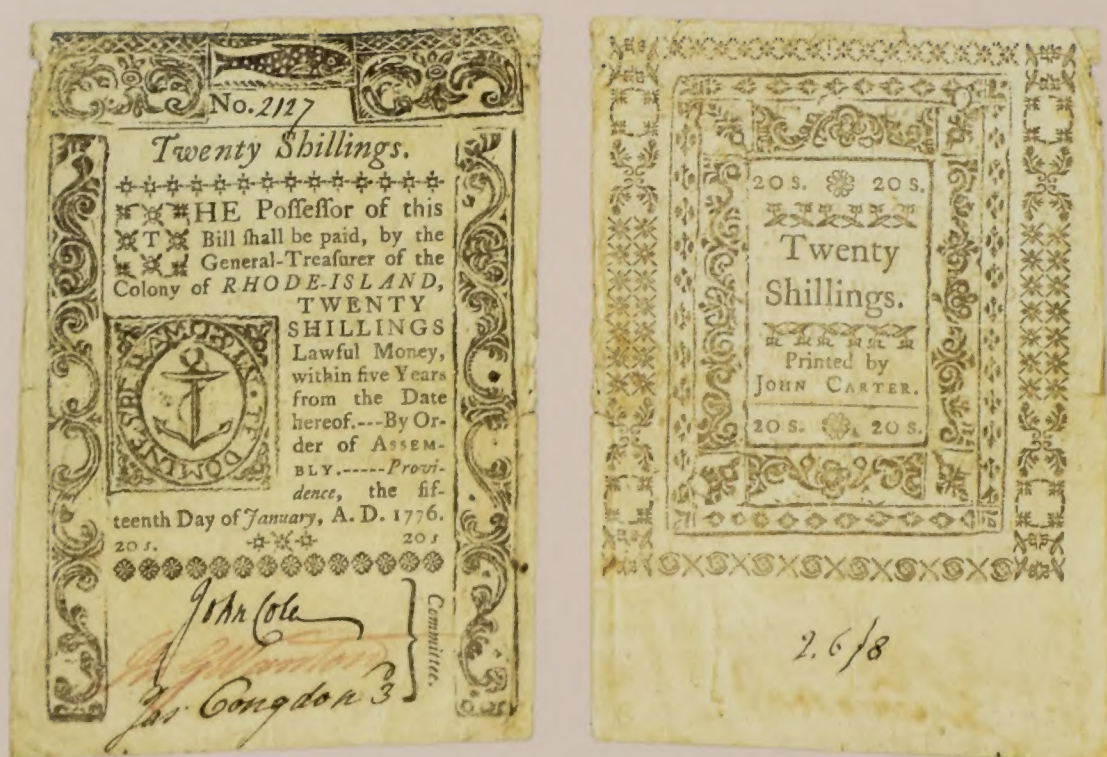 No. 2127
Twenty Shillings.
THE Poſſeſſor of this
Bill ſhall be paid, by the
General-Treaſurer of the
Colony of RHODE-ISLAND,
TWENTY
SHILLINGS
Lawful Money,
within five Years
from the Date
hereof.---By Or-
der of ASSEM-
BLY.-----Provi-
dence, the fif-
teenth Day of January, A. D. 1776.
20 s. 20 s
IN TE DOMINE SPERAMUS
John Cole
Jas. Congdon 3
Committee.
20 S. 20 S.
Twenty
Shillings.
Printed by
JOHN CARTER.
20 S. 20 S.
2.6/8